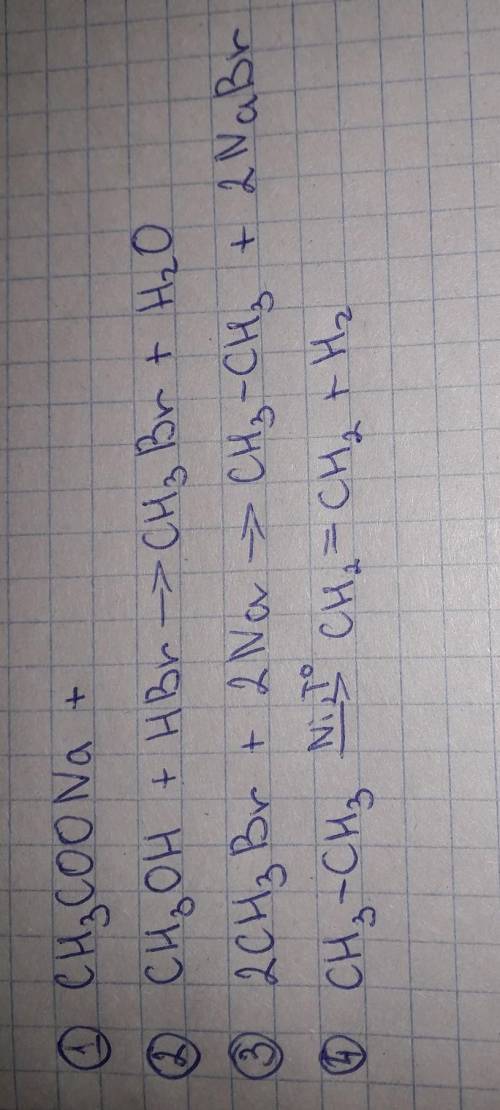 ① CH₃COONa +
② CH₃OH + HBr → CH₃Br + H₂O
③ 2CH₃Br + 2Na → CH₃-CH₃ + 2NaBr
④ CH₃-CH₃ Ni, T° → CH₂=CH₂ + H₂